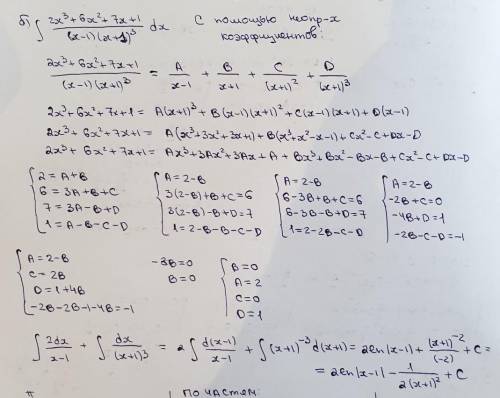 б) ∫ (2x³+6x²+7x+1)/((x-1)(x+1)³) dx С помощью неопр-х
коэффициентов:
(2x³+6x²+7x+1)/((x-1)(x+1)³) = A/(x-1) + B/(x+1) + C/(x+1)² + D/(x+1)³
2x³+6x²+7x+1 = A(x+1)³+B(x-1)(x+1)²+C(x-1)(x+1)+D(x-1)
2x³+6x²+7x+1 = A(x³+3x²+3x+1)+B(x³+x²-x-1)+Cx²-C+Dx-D
2x³+6x²+7x+1 = Ax³+3Ax²+3Ax+A+Bx³+Bx²-Bx-B+Cx²-C+Dx-D
{ 2=A+B { A=2-B { A=2-B { A=2-B
6=3A+B+C 3(2-B)+B+C=6 6-3B+B+C=6 -2B+C=0
7=3A-B+D 3(2-B)-B+D=7 6-3B-B+D=7 -4B+D=1
1=A-B-C-D 1=2-B-B-C-D 1=2-2B-C-D -2B-C-D=-1
{ A=2-B -3B=0 { B=0
C=2B B=0 A=2
D=1+4B C=0
-2B-2B-1-4B=-1 D=1
∫ 2dx/(x-1) + ∫ dx/(x+1)³ = 2∫ d(x-1)/(x-1) + ∫(x+1)⁻³d(x+1) = 2ln|x-1| + (x+1)⁻²/(-2) + C =
= 2ln|x-1| - 1/(2(x+1)²) + C
по частям: